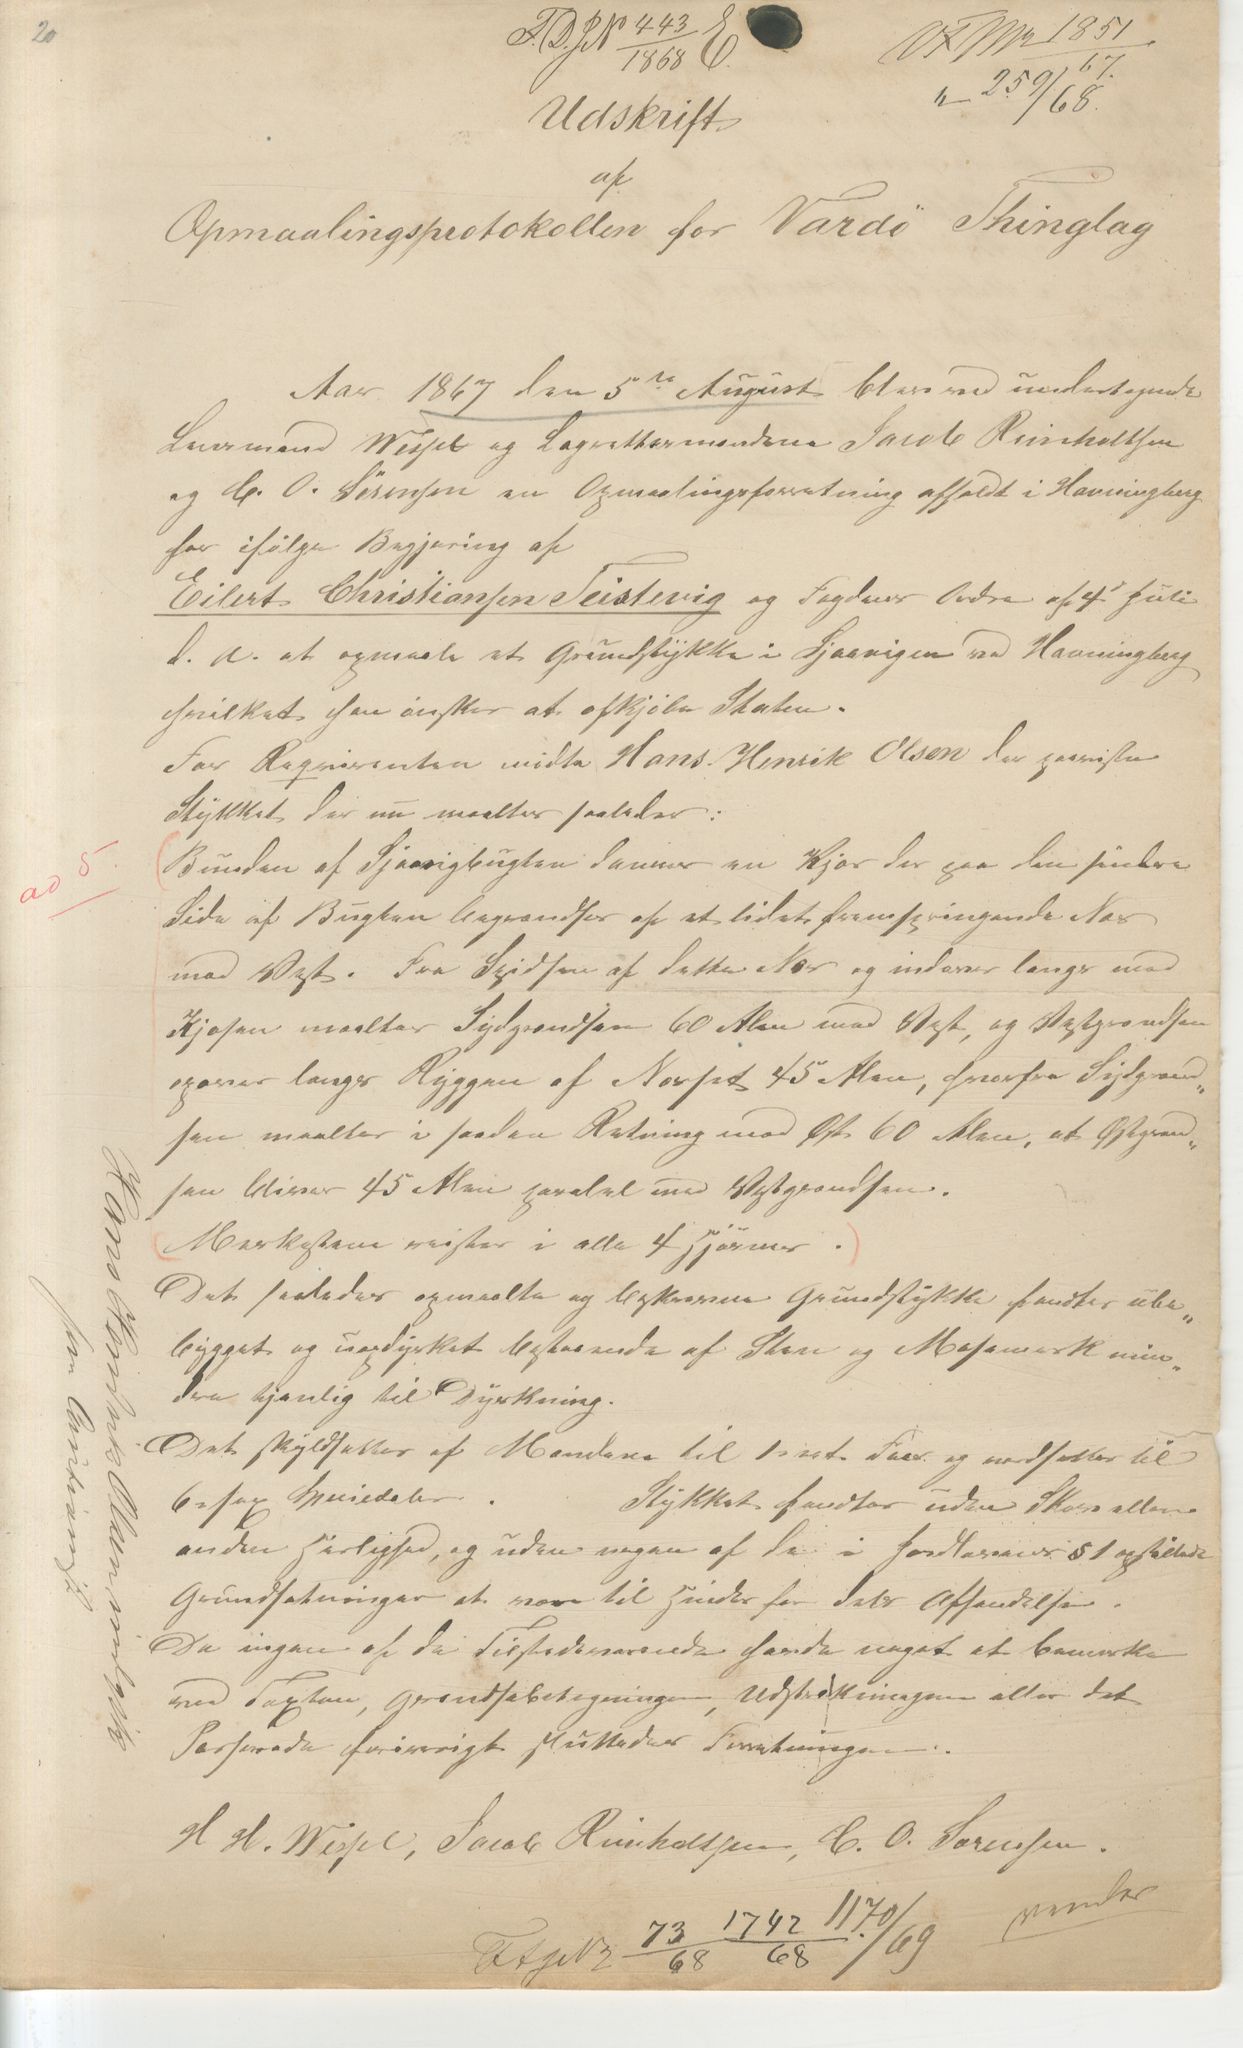 20
F.D.J.N 443/1868 E.
1851/67.
" 259/68.
Udskrift
af
Opmaalingsprotokollen for Vardö Thinglag
Aar 1867 den 5te August blev ved undertegnede
Lensmand Wessel og Lagrettesmændene Jacob Reinholtsen
og C. O. Sörensen en Opmaalingsforretning afholdt i Havningberg
for ifölge Begjæring af
Eilert Christiansen Teistevig og Fogdens Ordre af 4d Juli
d. A. at opmaale et Grundstykke i Sjaavigen ved Havningberg
hvilket han önsker at afkjöbe Staten.
For Reqvirenten mödte Hans Henrik Olsen der paaviste
Stykket der nu maaltes saaledes:
ad 5
Bunden af Sjaavigbugten danner en Kjos der paa den söndre
Side af Bugten begrændses af et lidet fremspringende Næs
mod Vest. Fra Spidsen af dette Næs og indover langs med
Kjosen maaltes Sydgrændsen 60 Alen mod Vest, og Vestgrændsen
opover langs Ryggen af Næsset 45 Alen, hvorfra Sydgrænd„
sen maaltes i samme Retning mod Øst 60 Alen, at Østgrænd„
sen bliver 45 Alen paralel med Vestgrændsen.
Merkestene reistes i alle 4 Hjörner.
Det saaledes opmaalte og beskrevne Grundstykke fandtes ube„
bygget og uopdyrket bestaaende af Sten og Mosemark min„
dre tjenlig til Dyrkning.
Det skyldsattes af Mændene til 1 - et Øre og værdsattes til
6 - sex Speciedaler. Stykket fandtes uden Skov eller
anden Herlighed, og uden nogen af de i Jordlovens § 1 opstillede
Grundsætninger at være til Hinder for dets Afhændelse.
Da ingen af de Tilstedeværende havde noget at bemærke
ved Taxten, Grændsebetegningen, Udstrækningen eller det
Passerede forövrigt sluttedes Forretningen.
H H. Wessel, Jacob Reinholtsen, C. O. Sörensen.
73/68 1742/68 1170/69
vender
Hans Henrik Olsen